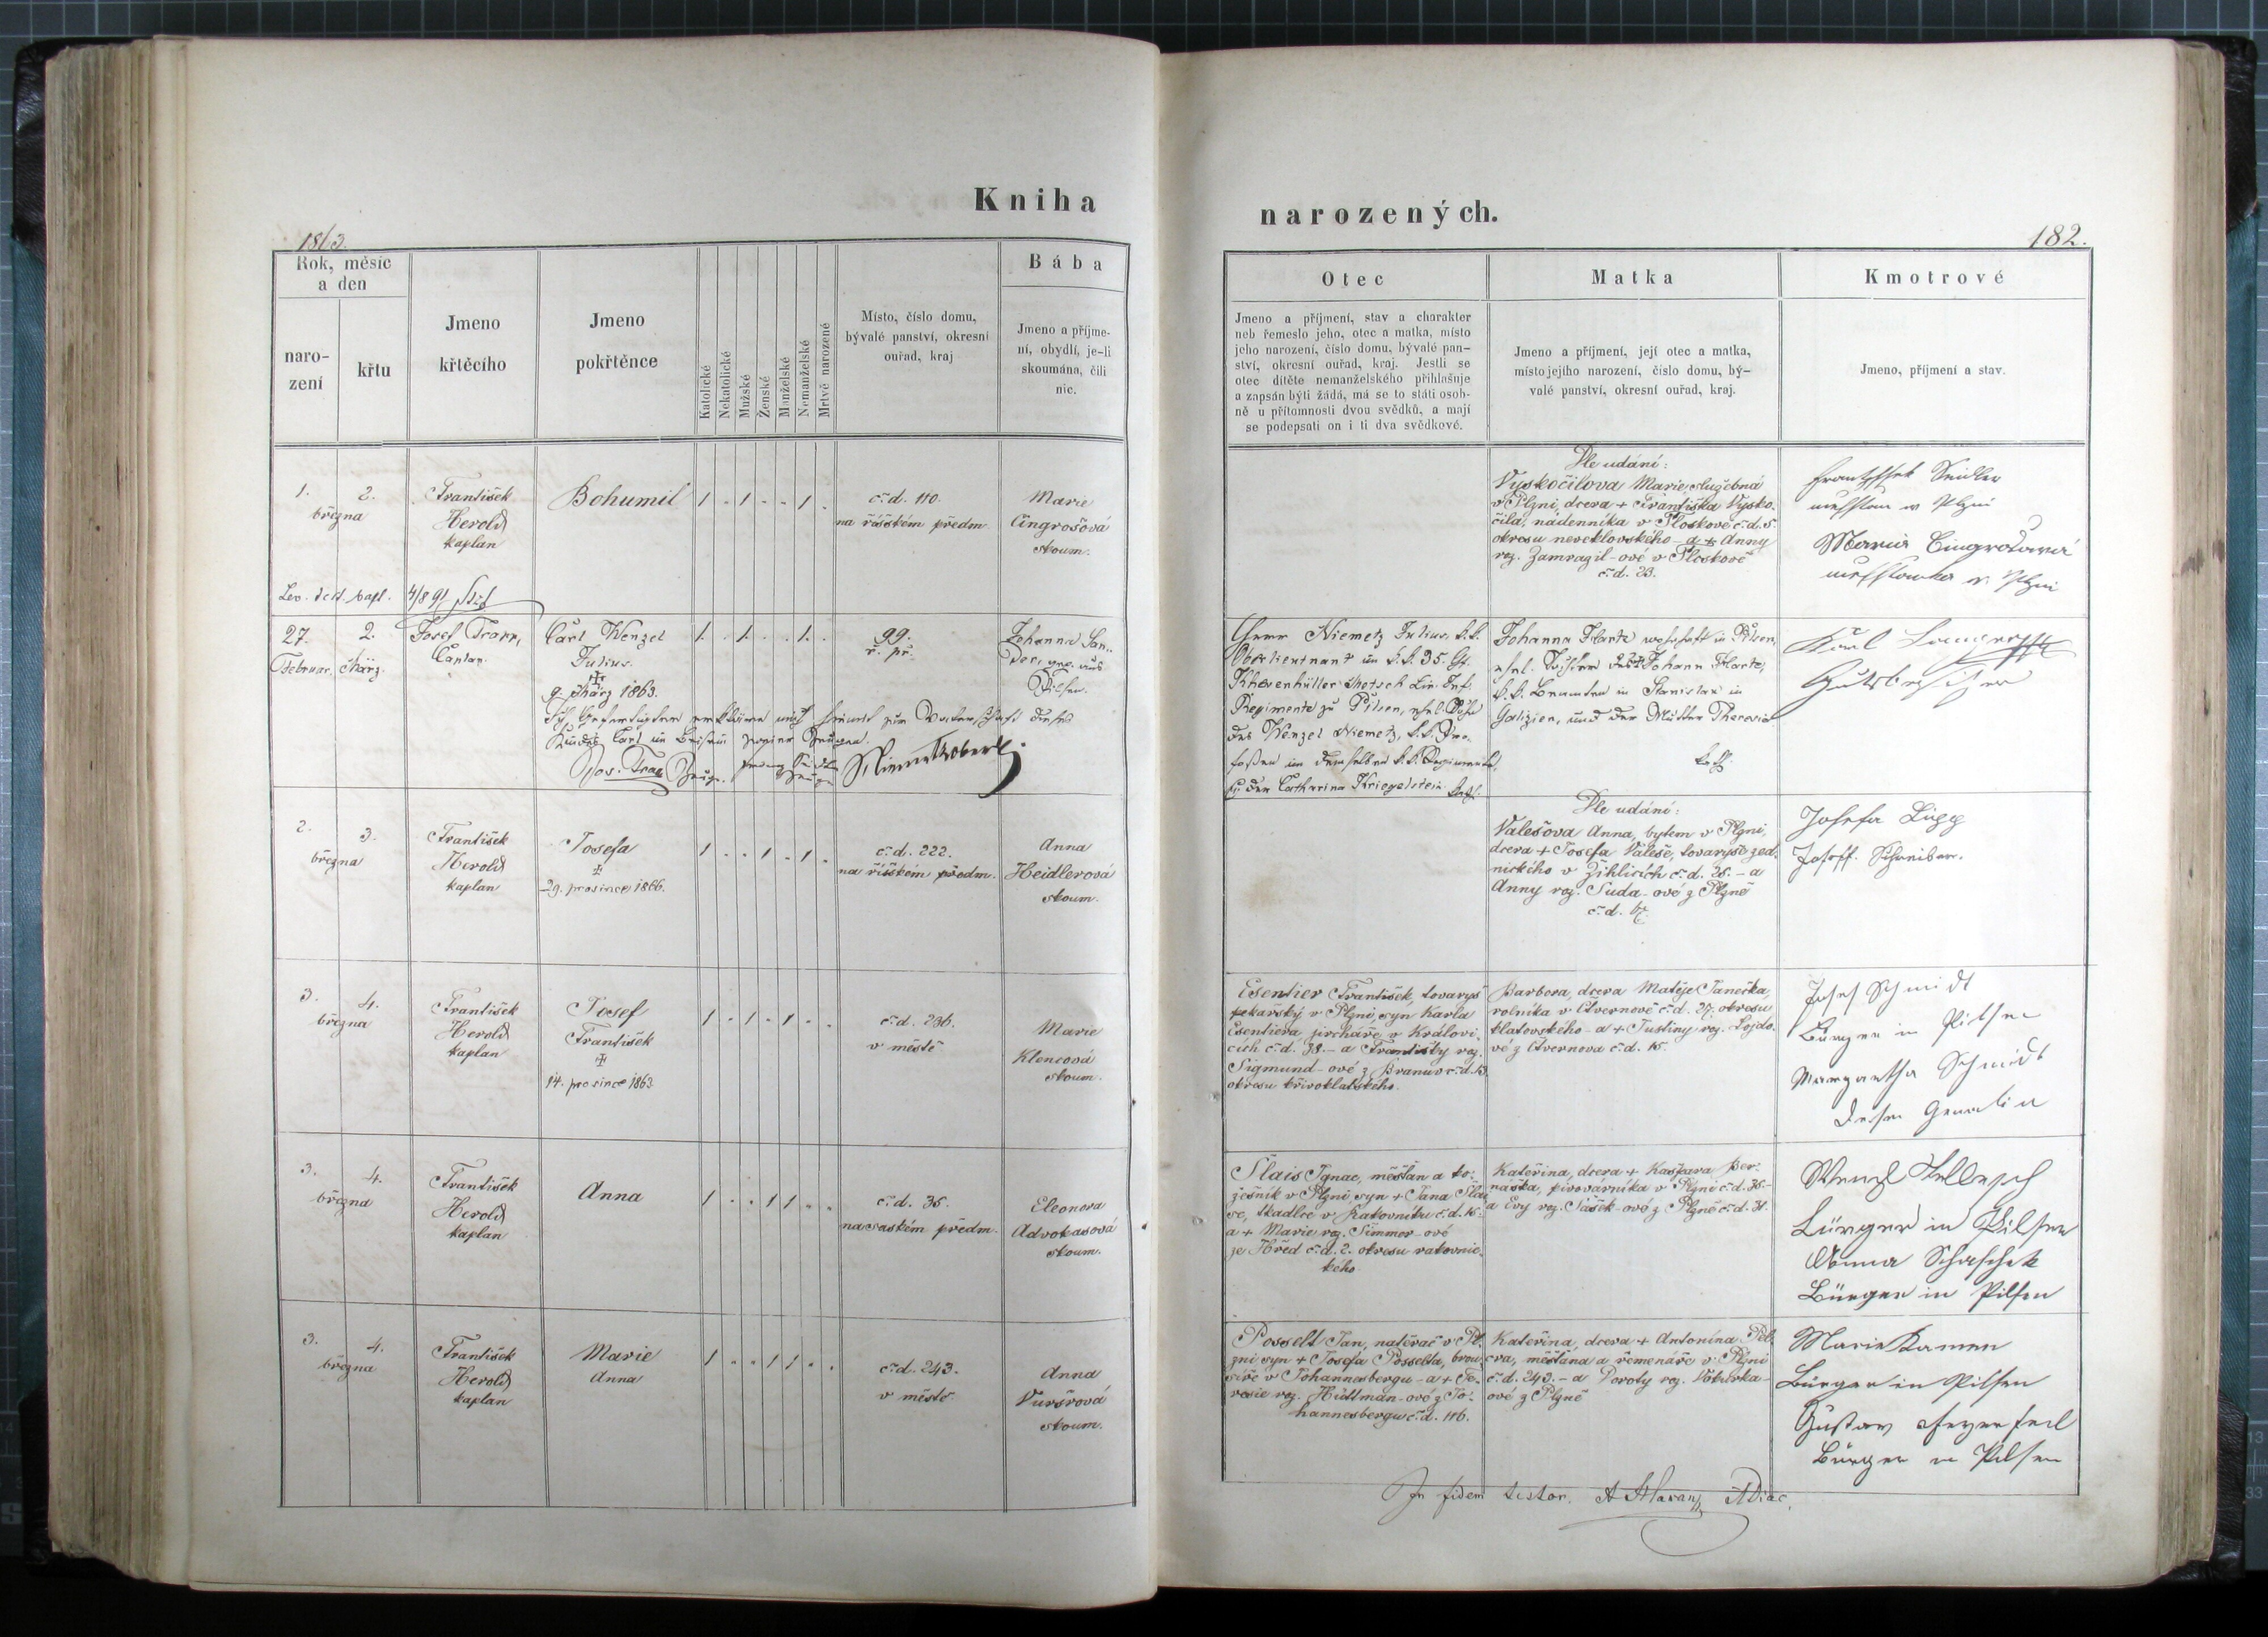 Kniha
narozených.
1863.
182.
Rok, měsíc
a den
naro-
zení
křtu
Jmeno
křtěcího
Jmeno
pokřtěnce
Katolické
Nekatolické
Mužské
Ženské
Manželské
Nemanželské
Mrtvě narozené
Místo, číslo domu,
bývalé panství, okresní
ouřad, kraj
Bába
Jmeno a příjme-
ní, obydlí, je-li
skoumána, čili
nic.
Otec
Jmeno a příjmení, stav a charakter
neb řemeslo jeho, otec a matka, místo
jeho narození, číslo domu, bývalé pan-
ství, okresní ouřad, kraj. Jestli se
otec dítěte nemanželského přihlašuje
a zapsán býti žádá, má se to státi osob-
ně u přítomnosti dvou svědků, a mají
se podepsati on i ti dva svědkové.
Matka
Jmeno a příjmení, její otec a matka,
místo jejího narození, číslo domu, bý-
valé panství, okresní ouřad, kraj.
Kmotrové
Jmeno, příjmení a stav.
1. 2.
března
František
Herold
kaplan
Bohumil
1 . 1 . . 1 .
č. d. 110.
na říšském předm.
Marie
Čingrošová
skoum.
4/8 91
Dle udání:
Vyskočilova Marie, služebná
v Plzni, dcera + Františka Vysko-
čila, nádenníka v Ploskově č. d. 5.
okresu neveklovského - a + Anny
roz. Zamrazil-ové v Ploskově
č. d. 23.
v Plzni
Maria Cingrošová
v Plzni
27. 2.
Februar. März.
Josef Tran,
Caplan.
Carl Wenzel
Julius.
9. März 1863.
1. . 1. . . 1. .
99.
ř. př.
Johanna
Pilsen.
Jos. Tran Zeuge.
Herr Niemetz Julius, k. k.
Oberlieutnant im k. k. 35. Gf.
Khevenhüller Metsch Lin. Inf.
Regimente zu Pilsen, ehel. Sohn
des Wenzel Niemetz, k. k. Pro-
foßen im demselben k. k. Regimente,
u. der Catharina Kriegelstein kath.
Johanna Hartz wohnhaft in Pilsen,
ehel. Tochter des Johann Hartz,
k. k. Beamten in Stanislau in
Galizien, und der Mutter Theresia
kath.
Karl
Gutsbesitzer
2. 3.
března
František
Herold
kaplan
Josefa
29. prosince 1866.
1 . . 1 . 1 .
č. d. 222.
na říšském předm.
Anna
Heidlerová
skoum.
Dle udání:
Valešova Anna, bytem v Plzni,
dcera + Josefa Valeše, tovaryše zed-
nického v Žihlicích č. d. 28. - a
Anny roz. Suda-ové z Plzně
č. d.
Josefa
Josef Schreiber.
3. 4.
března
František
Herold
kaplan
Josef
František
14. prosince 1863.
1 . 1 . 1 . .
č. d. 236.
v městě
Marie
Klencová
skoum.
Esentier František, tovaryš
pekařský v Plzni, syn Karla
Esentiera jircháře v Královi-
cích č. d. 38. - a Františky roz.
Sigmund-ové z Branova č. d. 13.
okresu křivoklatského.
Barbora, dcera Matěje Janečka,
rolníka v Čtvernově č. d. 27. okresu
klatovského - a + Justiny roz. Lojdo-
vé z Čtvernova č. d. 15.
Josef Schmidt
Bürger in Pilsen
Margaretha Schmidt
dessen Gemalin
3. 4.
března
František
Herold
kaplan
Anna
1 . . 1 1 . .
č. d. 35.
na saském předm.
Eleonora
Advokasová
skoum.
Šlais Ignac, měšťan a ko-
žešník v Plzni, syn + Jana Šlai-
se, tkadlce v Rakovníku č. d. 15.
a + Marie roz. Simmer-ové
ze Hřed č. d. 2. okresu rakovnic-
kého.
Kateřina, dcera + Kašpara Ber-
naška, pivovárníka v Plzni č. d. 35 -
a Evy roz. Sašek-ové z Plzně č. d. 31.
Wenzl
Bürger in Pilsen
Anna Schaschek
Bürger in Pilsen
3. 4.
března
František
Herold
kaplan
Marie
Anna
1 . . 1 1 . .
č. d. 243.
v městě
Anna
Vuršrová
skoum.
Posselt Jan, natěrač v Pl-
zni syn + Josefa Posselta, brou-
síře v Johannesbergu - a + Te-
rezie roz. Hüttman-ové z Jo-
hannesbergu č. d. 116.
Kateřina, dcera + Antonína Pel-
cra, měšťana a řemenáře v Plzni
č. d. 243. - a Doroty roz. Voturka-
ové z Plzně
Marie Kamen
Bürger in Pilsen
Gustav
Bürger in Pilsen
In fidem testor.